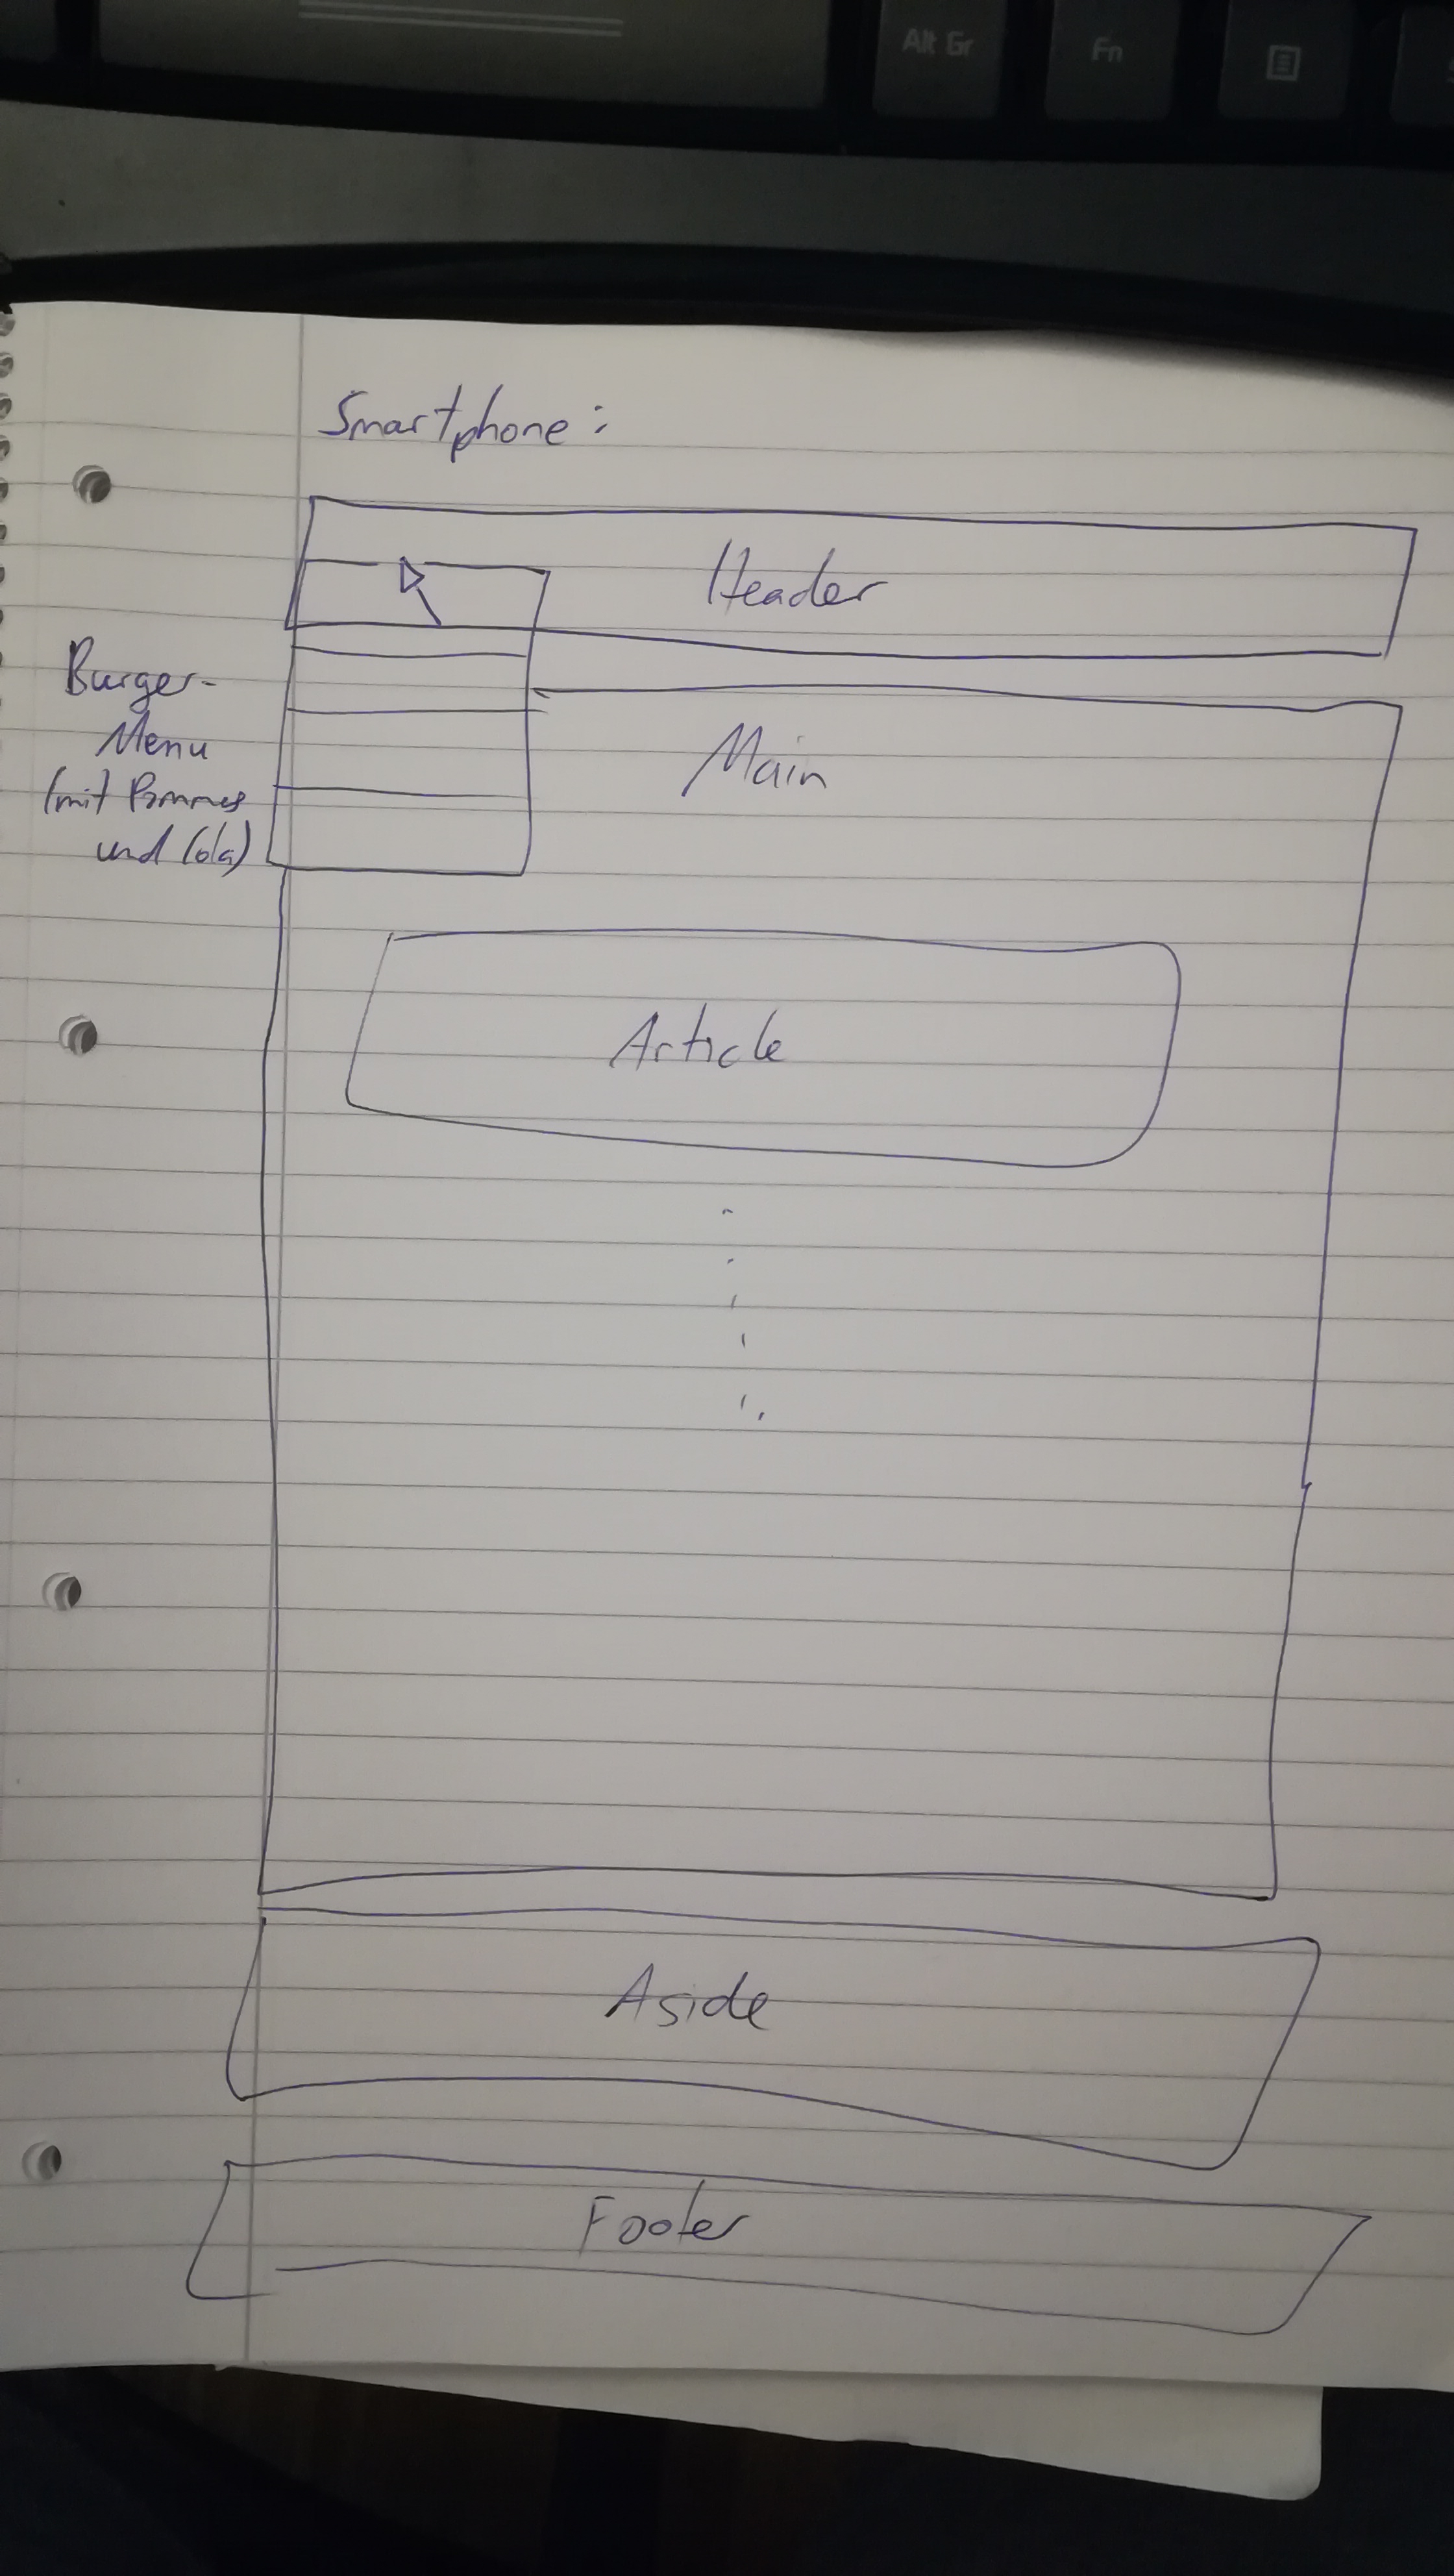 Alt Gr
Fn
Smartphone:
Header
Burger-
Menu
(mit Pommes
und Cola)
Main
Article
Aside
Footer